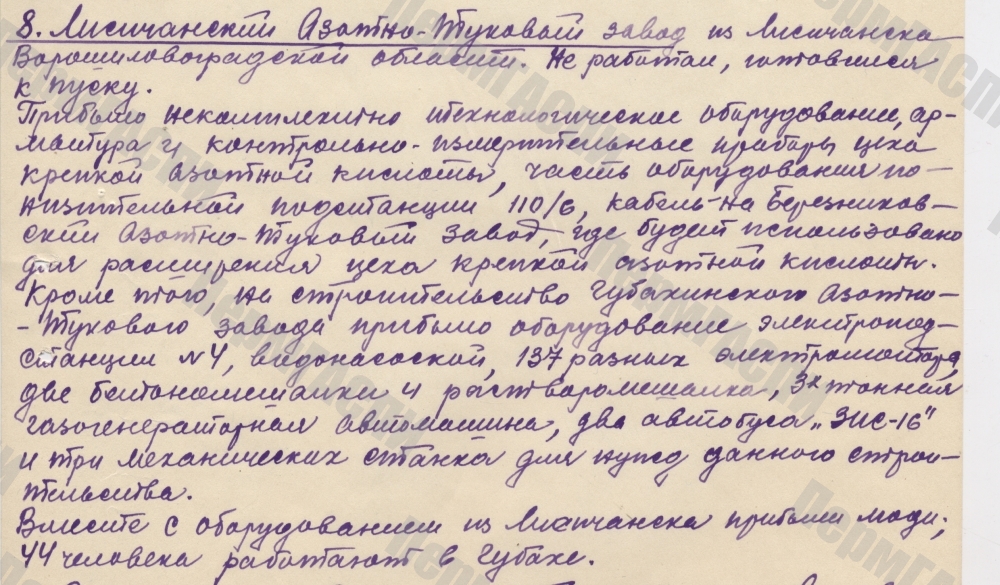 8. Лисичанский Азотно-Туковый завод из Лисичанска
Ворошиловоградской области. Не работал, готовился
к пуску.
Прибыло некомплектно технологическое оборудование, ар-
матура и контрольно-измерительные приборы цеха
крепкой азотной кислоты, часть оборудования по-
низительной подстанции 110/6, кабель-на Березников-
ский Азотно-Туковый завод, где будет использовано
для расширения цеха крепкой азотной кислоты.
Кроме того, на строительство Губахинского Азотно-
-Тукового завода прибыло оборудование электропод-
станции №4, водонасосной, 137 разных электромотора,
две бетономешалки и растворомешалка, 3х тонная
газогенераторная автомашина, два автобуса „ЗИС-16"
и три механических станка для нужд данного строи-
тельства.
Вместе с оборудованием из Лисичанска прибыли люди;
44 человека работают в Губахе.
ПермГАСПИ